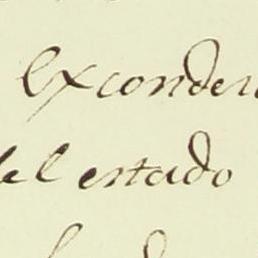 Exconder
del estado